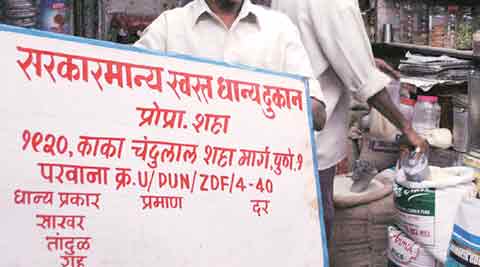 सरकारमान्य स्वस्त धान्य दुकान
प्रोप्रा. शहा
१९२०, काका चंदुलाल शहा मार्ग, पुणे. १
परवाना क्र. U/DUN/ZDF/4-40
धान्य प्रकार प्रमाण दर
साखर
तांदुळ
गहु